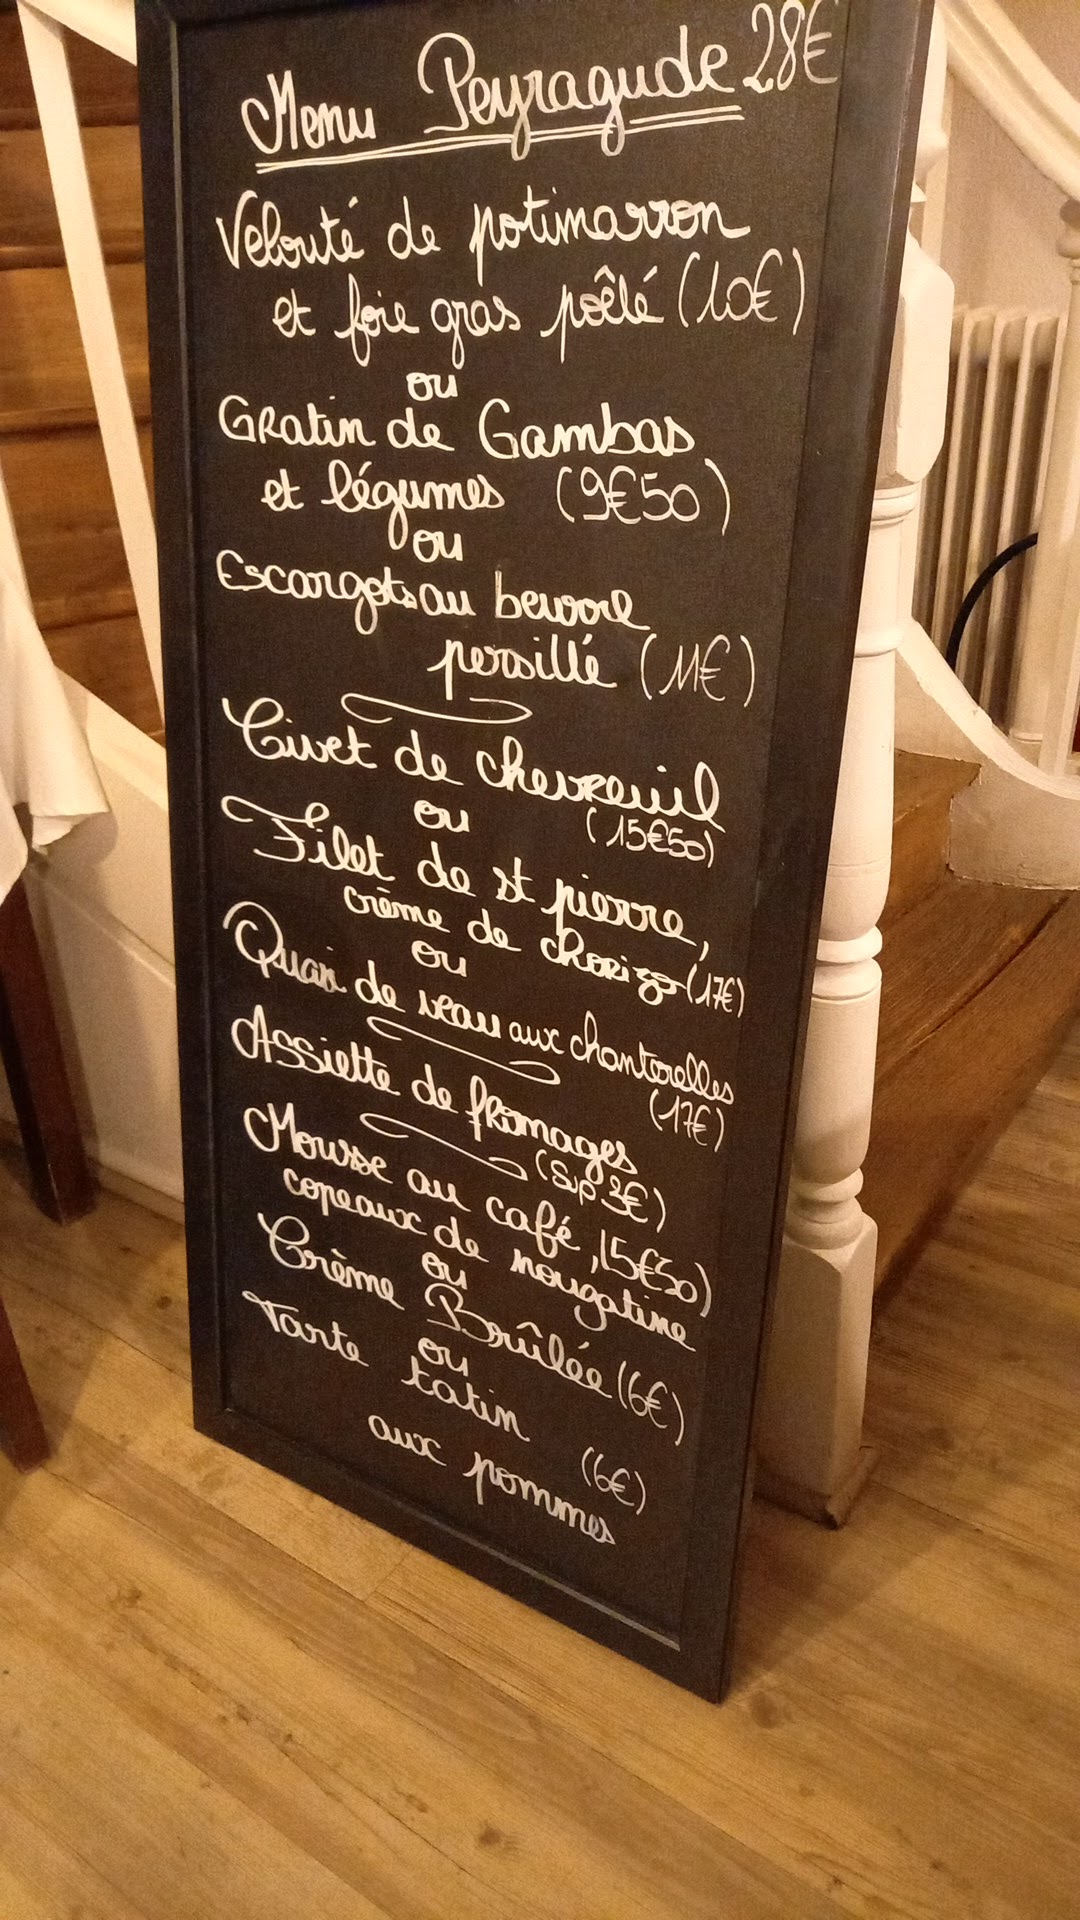 Menu Peyragude 28€
Velouté de potimarron
et foie gras poêlé (10€)
ou
Gratin de Gambas
et légumes (9€50)
ou
Escargots au beurre
persillé (11€)
Civet de chevreuil
ou (15€50)
Filet de st pierre,
crème de chorizo (17€)
ou
Quasi de veau aux chanterelles
(17€)
Assiette de fromages
(sup 3€)
Mousse au café, (5€50)
copeaux de nougatine
ou
Crème Brûlée (6€)
ou
Tarte tatin (6€)
aux pommes